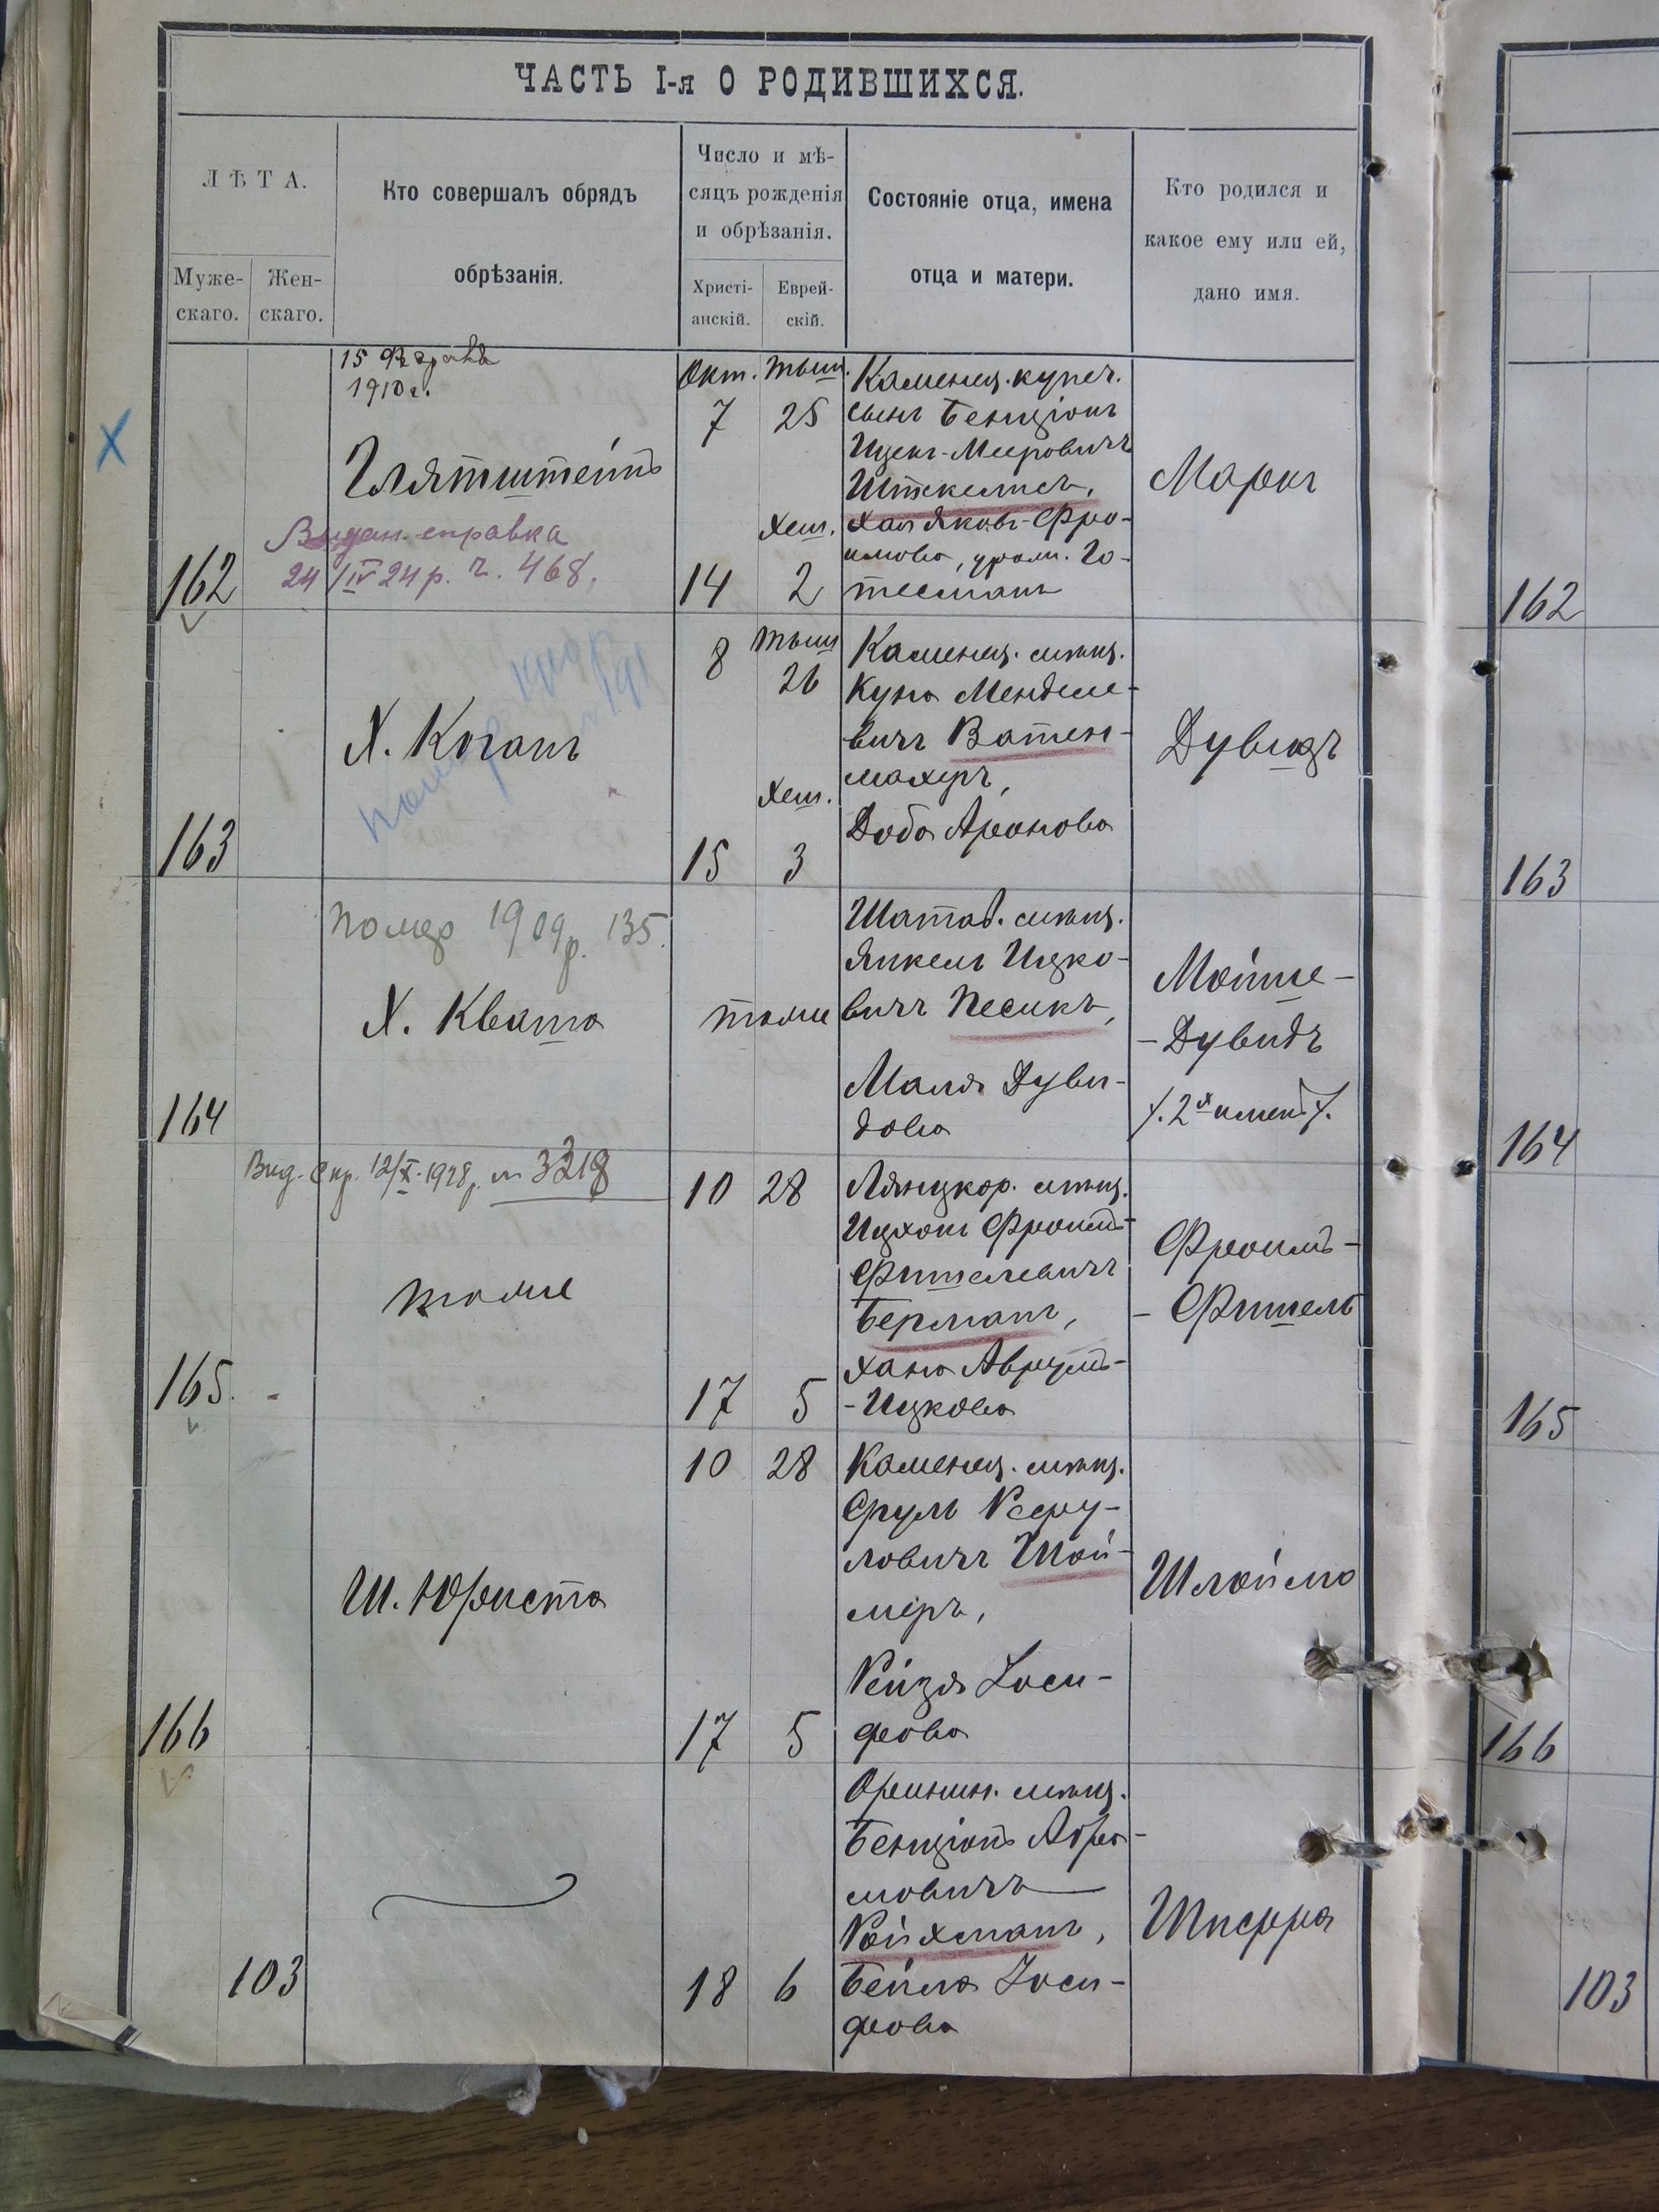 ЧАСТЬ I-я О РОДИВШИХСЯ.
ЛѢТА.
Муже-
скаго.
Жен-
скаго.
Кто совершалъ обрядъ
обрѣзанія.
Число и мѣ-
сяцъ рожденія
и обрѣзанія.
Христі-
анскій.
Еврей-
скій.
Состояніе отца, имена
отца и матери.
Кто родился и
какое ему или ей,
дано имя.
15
1910 г.
Глятштейнъ
Выдан. справка
24/IV 24 р. ч. 468.
162
Окт. Тыш.
7 25
Хеш.
14 2
Каменец. купеч.
сынъ Бенціонъ
Ицекъ-Мееровичъ
Штекельсъ,
Хая Яковъ-Фро-
имова, урож. Го-
тесманъ
Маркъ
162
163
Х. Коганъ
8 Тыш
26
Хеш.
15 3
Каменец. мѣщ.
Куна Менделе-
вичъ Ватен-
махеръ,
Доба Аронова
Дувидъ
163
Помер 1909 р. 135.
164
Х. Кваша
тоже
Шатав. мѣщ.
Янкель Ицко-
вичъ Песикъ,
Маля Дуви-
дова
Мойше-
-Дувидъ
/. 2х имен /.
164
Вид. спр. 12/X. 1928 р. № 3218
165.
тоже
10 28
17 5
Лянцкор. мѣщ.
Ицхокъ Фроимъ-
Фишелевичъ
Берманъ,
Хана Аврумъ-
-Ицкова
Фроимъ-
- Фишель
165
166
Ш. Юриста
10 28
17 5
Каменец. мѣщ.
Сруль
ловичъ Шой-
меръ,
Рейзя Іоси-
фова
Шлойма
166
103
18 6
Оринин. мѣщ.
Бенціонъ Абра-
мовичъ
Ройхманъ,
Бейла Іоси-
фова
Шперра
103